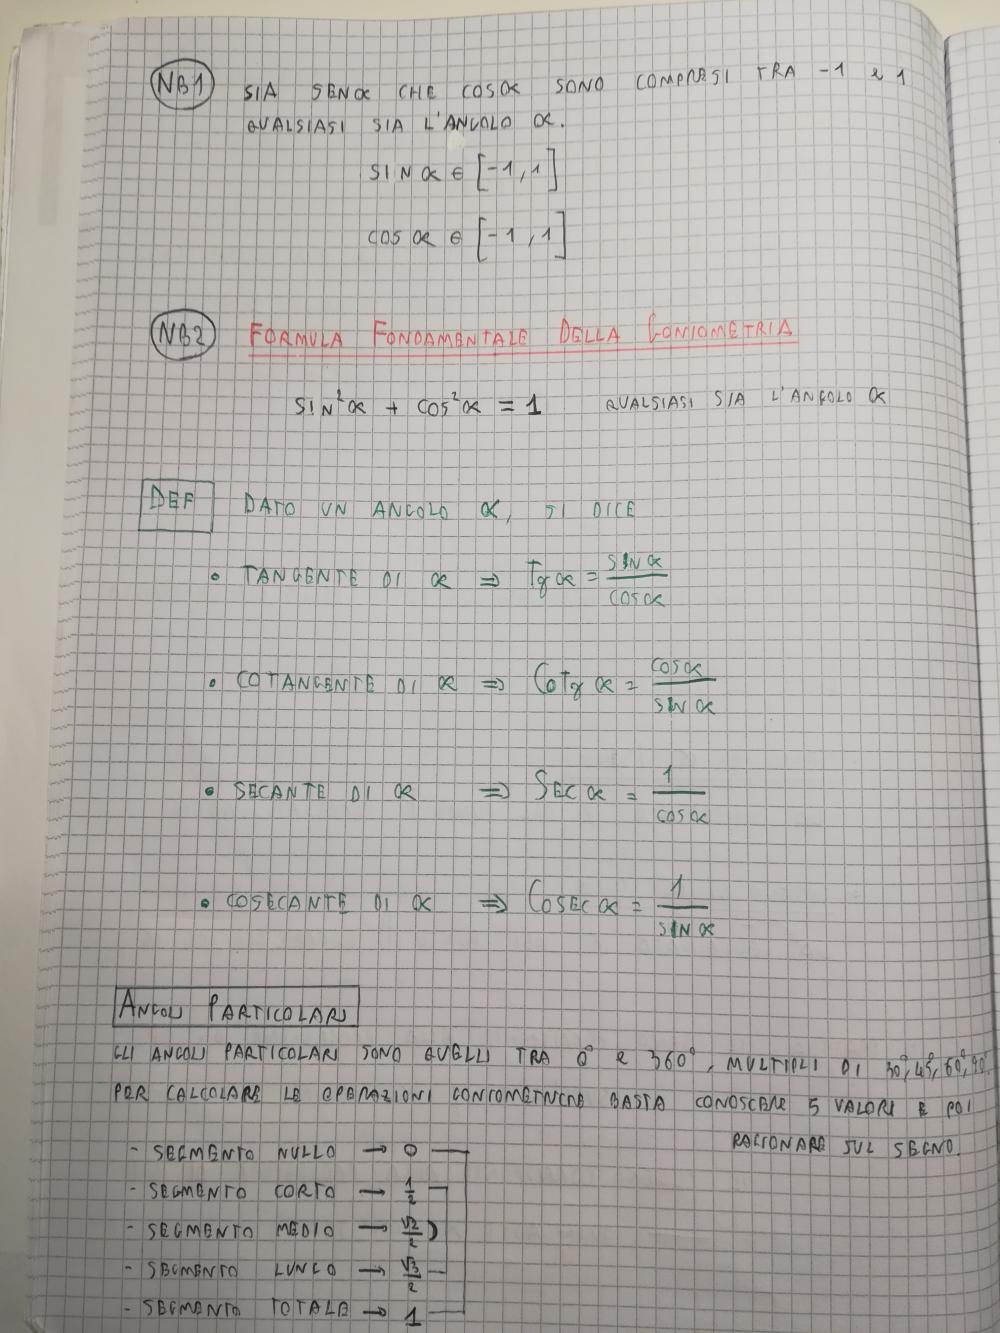 NB1 SIA SENα CHE COSα SONO COMPRESI TRA -1 e 1
QUALSIASI SIA L'ANGOLO α.
SIN α ∈ [-1,1]
COS α ∈ [-1,1]
NB2 FORMULA FONDAMENTALE DELLA GONIOMETRIA
SIN²α + COS²α = 1 QUALSIASI SIA L'ANGOLO α
DEF DATO UN ANGOLO α, SI DICE
• TANGENTE DI α ⇒ Tg α = SIN α / COS α
• COTANGENTE DI α ⇒ Cotg α = COS α / SIN α
• SECANTE DI α ⇒ SEC α = 1 / COS α
• COSECANTE DI α ⇒ COSEC α = 1 / SIN α
ANGOLI PARTICOLARI
GLI ANGOLI PARTICOLARI SONO QUELLI TRA 0° e 360°, MULTIPLI DI 30°, 45°, 60°, 90°
PER CALCOLARE LE OPERAZIONI GONIOMETRICHE BASTA CONOSCERE 5 VALORI E POI
RAGIONARE SUL SEGNO.
- SEGMENTO NULLO → 0
- SEGMENTO CORTO → 1/2
- SEGMENTO MEDIO → √2/2
- SEGMENTO LUNGO → √3/2
- SEGMENTO TOTALE → 1